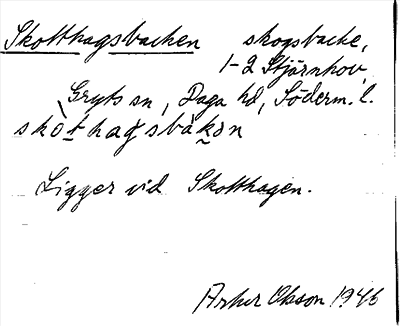 Skotthagsbacken skogsbacke,
1-2 Stjärnhov,
Gryts sn, Daga hd, Söderm. l.
skòthagsbàkən
Ligger vid Skotthagen.
Olsson 1946